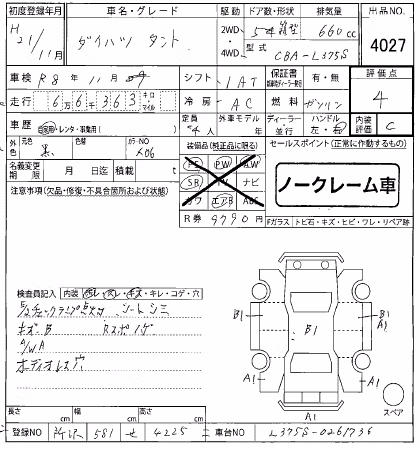 初度登録年月 車名・グレード 駆動 ドア数・形状 排気量 出品NO.
H21/11月 ダイハツ タント 2WD・4WD 5ドア 660cc 4027
型式 CBA-L375S
車検 R8年11月 シフト 1AT 保証書 有・無 評価点
走行 66363 キロ マイル 冷房 AC 燃料 ガソリン 4
車歴 自家用・レンタ・事業用( ) 定員 4人 外車モデル 年 ディーラー・並行 ハンドル 左・右 内装評価 C
外色 元色 黒 色替 カラーNO X06 装備品(純正品に限る) セールスポイント(正常に作動するもの)
名義変更期限 月 日迄 積載 t PS PW AW
注意事項(欠品・修復・不具合箇所および状態) SR TV ナビ ノークレーム車
カワ エアB ABS
R券 9790円 Fガラス トビ石・キズ・ヒビ・ワレ・リペア跡
検査員記入 内装 ヨゴレ・スレ・キズ・キレ・コゲ・穴
シートシミ
キズB
A/WA
ボディオレス穴
B1 B1 B1 A1
A1 A1
A1
スペア
長さ cm 幅 cm 高さ cm
登録NO 所沢 581 せ 4225 車台NO L375S-0261736